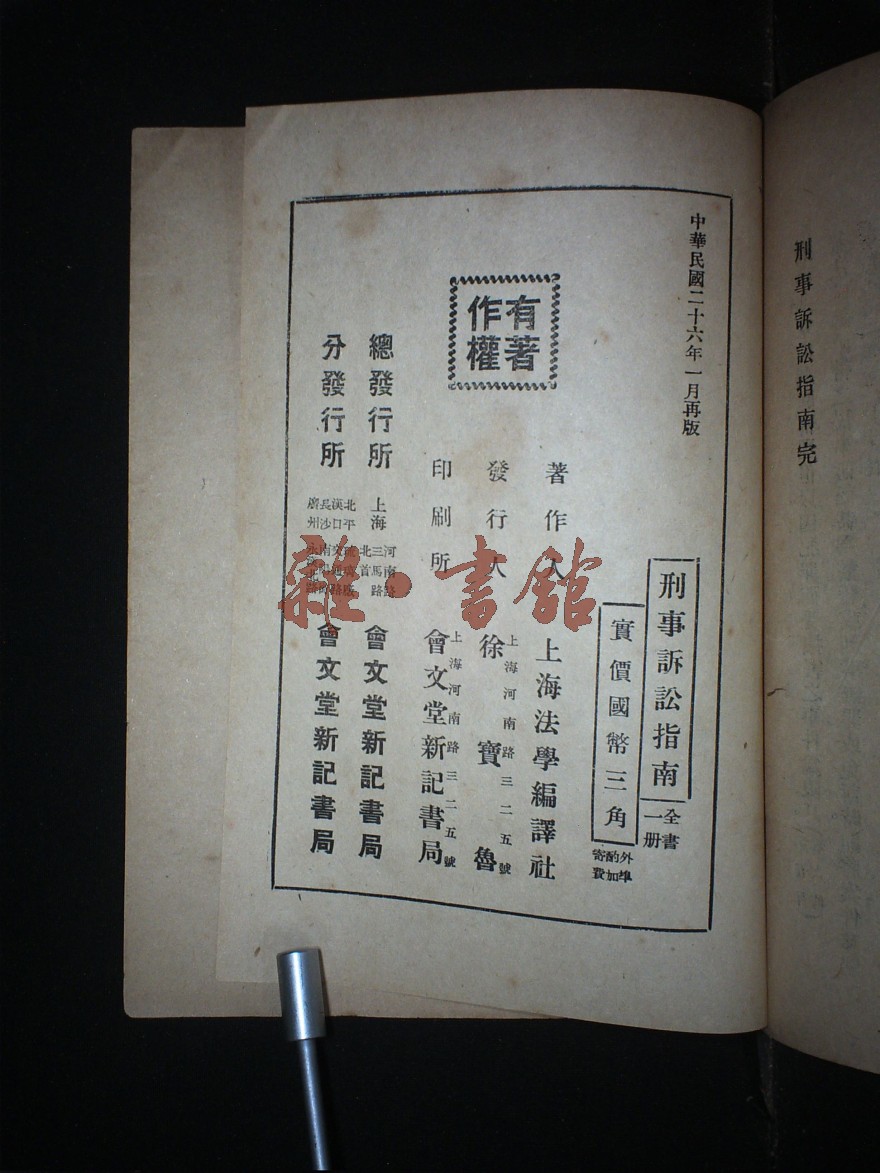 刑事訴訟指南完
中華民國二十六年一月再版
刑事訴訟指南
全書
一册
實價國幣三角
外埠
酌加
寄費
著作人 上海法學編譯社
發行人 徐寶魯
上海河南路三二五號
印刷所 會文堂新記書局
上海河南路三二五號
有著
作權
總發行所 上海 河南路 三馬路 北首 會文堂新記書局
分發行所 北平 漢口 長沙 廣州 會文堂新記書局
雜·書館